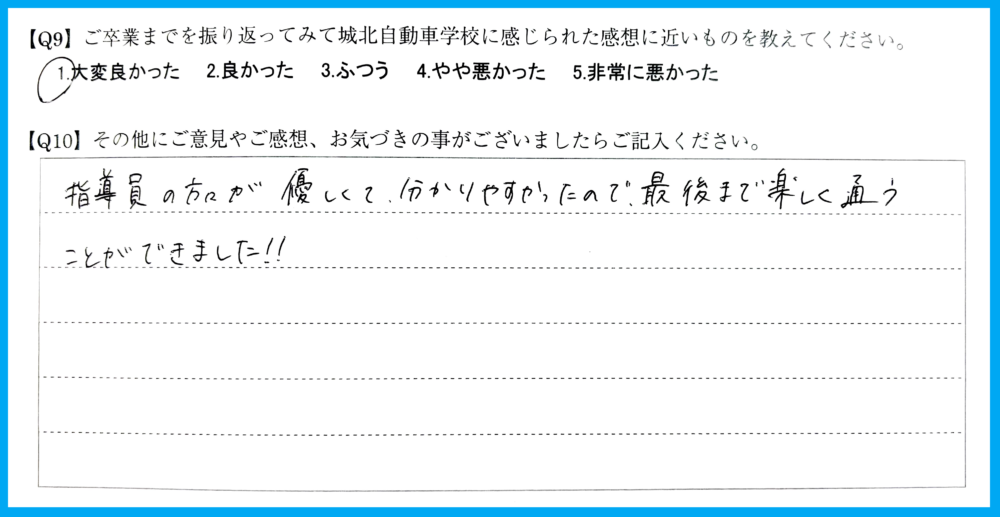 【Q9】ご卒業までを振り返ってみて城北自動車学校に感じられた感想に近いものを教えてください。
1.大変良かった 2.良かった 3.ふつう 4.やや悪かった 5.非常に悪かった
【Q10】その他にご意見やご感想、お気づきの事がございましたらご記入ください。
指導員の方々が優しくて、分かりやすかったので、最後まで楽しく通う
ことができました!!